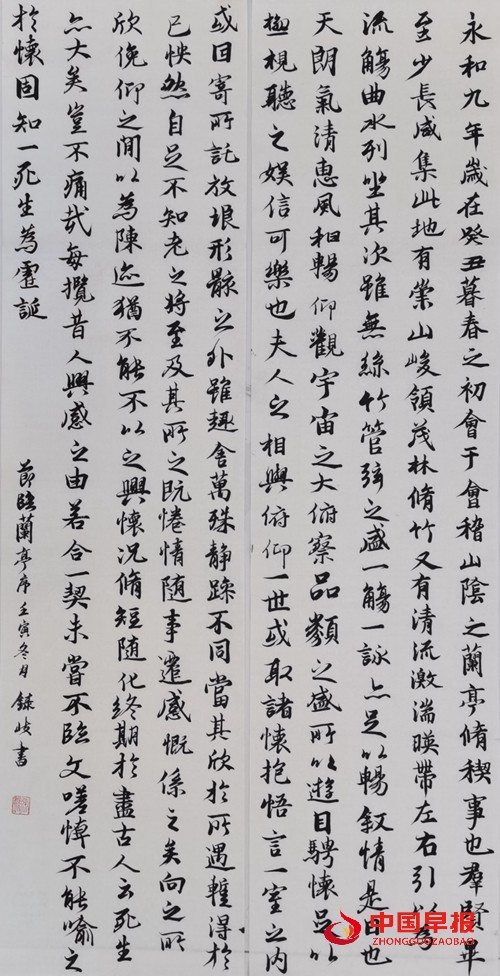 永和九年歲在癸丑暮春之初會于會稽山陰之蘭亭脩稧事也羣賢畢
至少長咸集此地有崇山峻領茂林脩竹又有清流激湍暎帶左右引以為
流觴曲水列坐其次雖無絲竹管弦之盛一觴一詠亦足以暢叙情是日也
天朗氣清惠風和暢仰觀宇宙之大俯察品類之盛所以遊目騁懷足以
極視聽之娛信可樂也夫人之相與俯仰一世或取諸懷抱悟言一室之內
或因寄所託放浪形骸之外雖趣舍萬殊静躁不同當其欣於所遇蹔得於
己怏然自足不知老之將至及其所之既惓情随事遷感慨係之矣向之所
欣俛仰之間以為陳迹猶不能不以之興懷況脩短随化終期於盡古人云死生
亦大矣豈不痛哉每攬昔人興感之由若合一契未嘗不臨文嗟悼不能喻之
於懷固知一死生為虛誕
節臨蘭亭序壬寅冬月岐書
中国早报
ZHONGGUOZAOBAO.COM